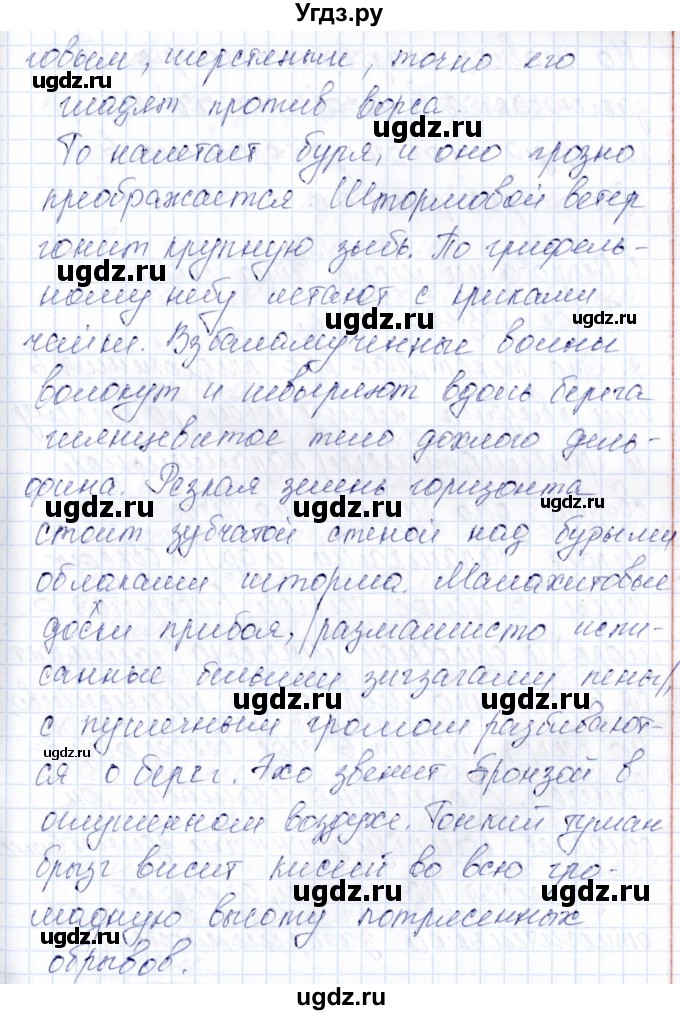 Угдз.ру
говым, шерстяным, точно его
гладят против ворса.
То налетает буря, и оно грозно
преображается. Штормовой ветер
гонит крупную зыбь. По грифель-
ному небу летают с криками
чайки. Взбаламученные волны
волокут и швыряют вдоль берега
глянцевитое тело дохлого дель-
фина. Резкая зелень горизонта
стоит зубчатой стеной над бурыми
облаками шторма. Малахитовые
доски прибоя, размашисто испи-
санные белыми зигзагами пены,
с пушечным громом разбивают-
ся о берег. Эхо звенит бронзой в
оглушенном воздухе. Тонкий туман
брызг висит кисеей во всю гро-
мадную высоту потрясенных
обрывов.
ugdz.ru